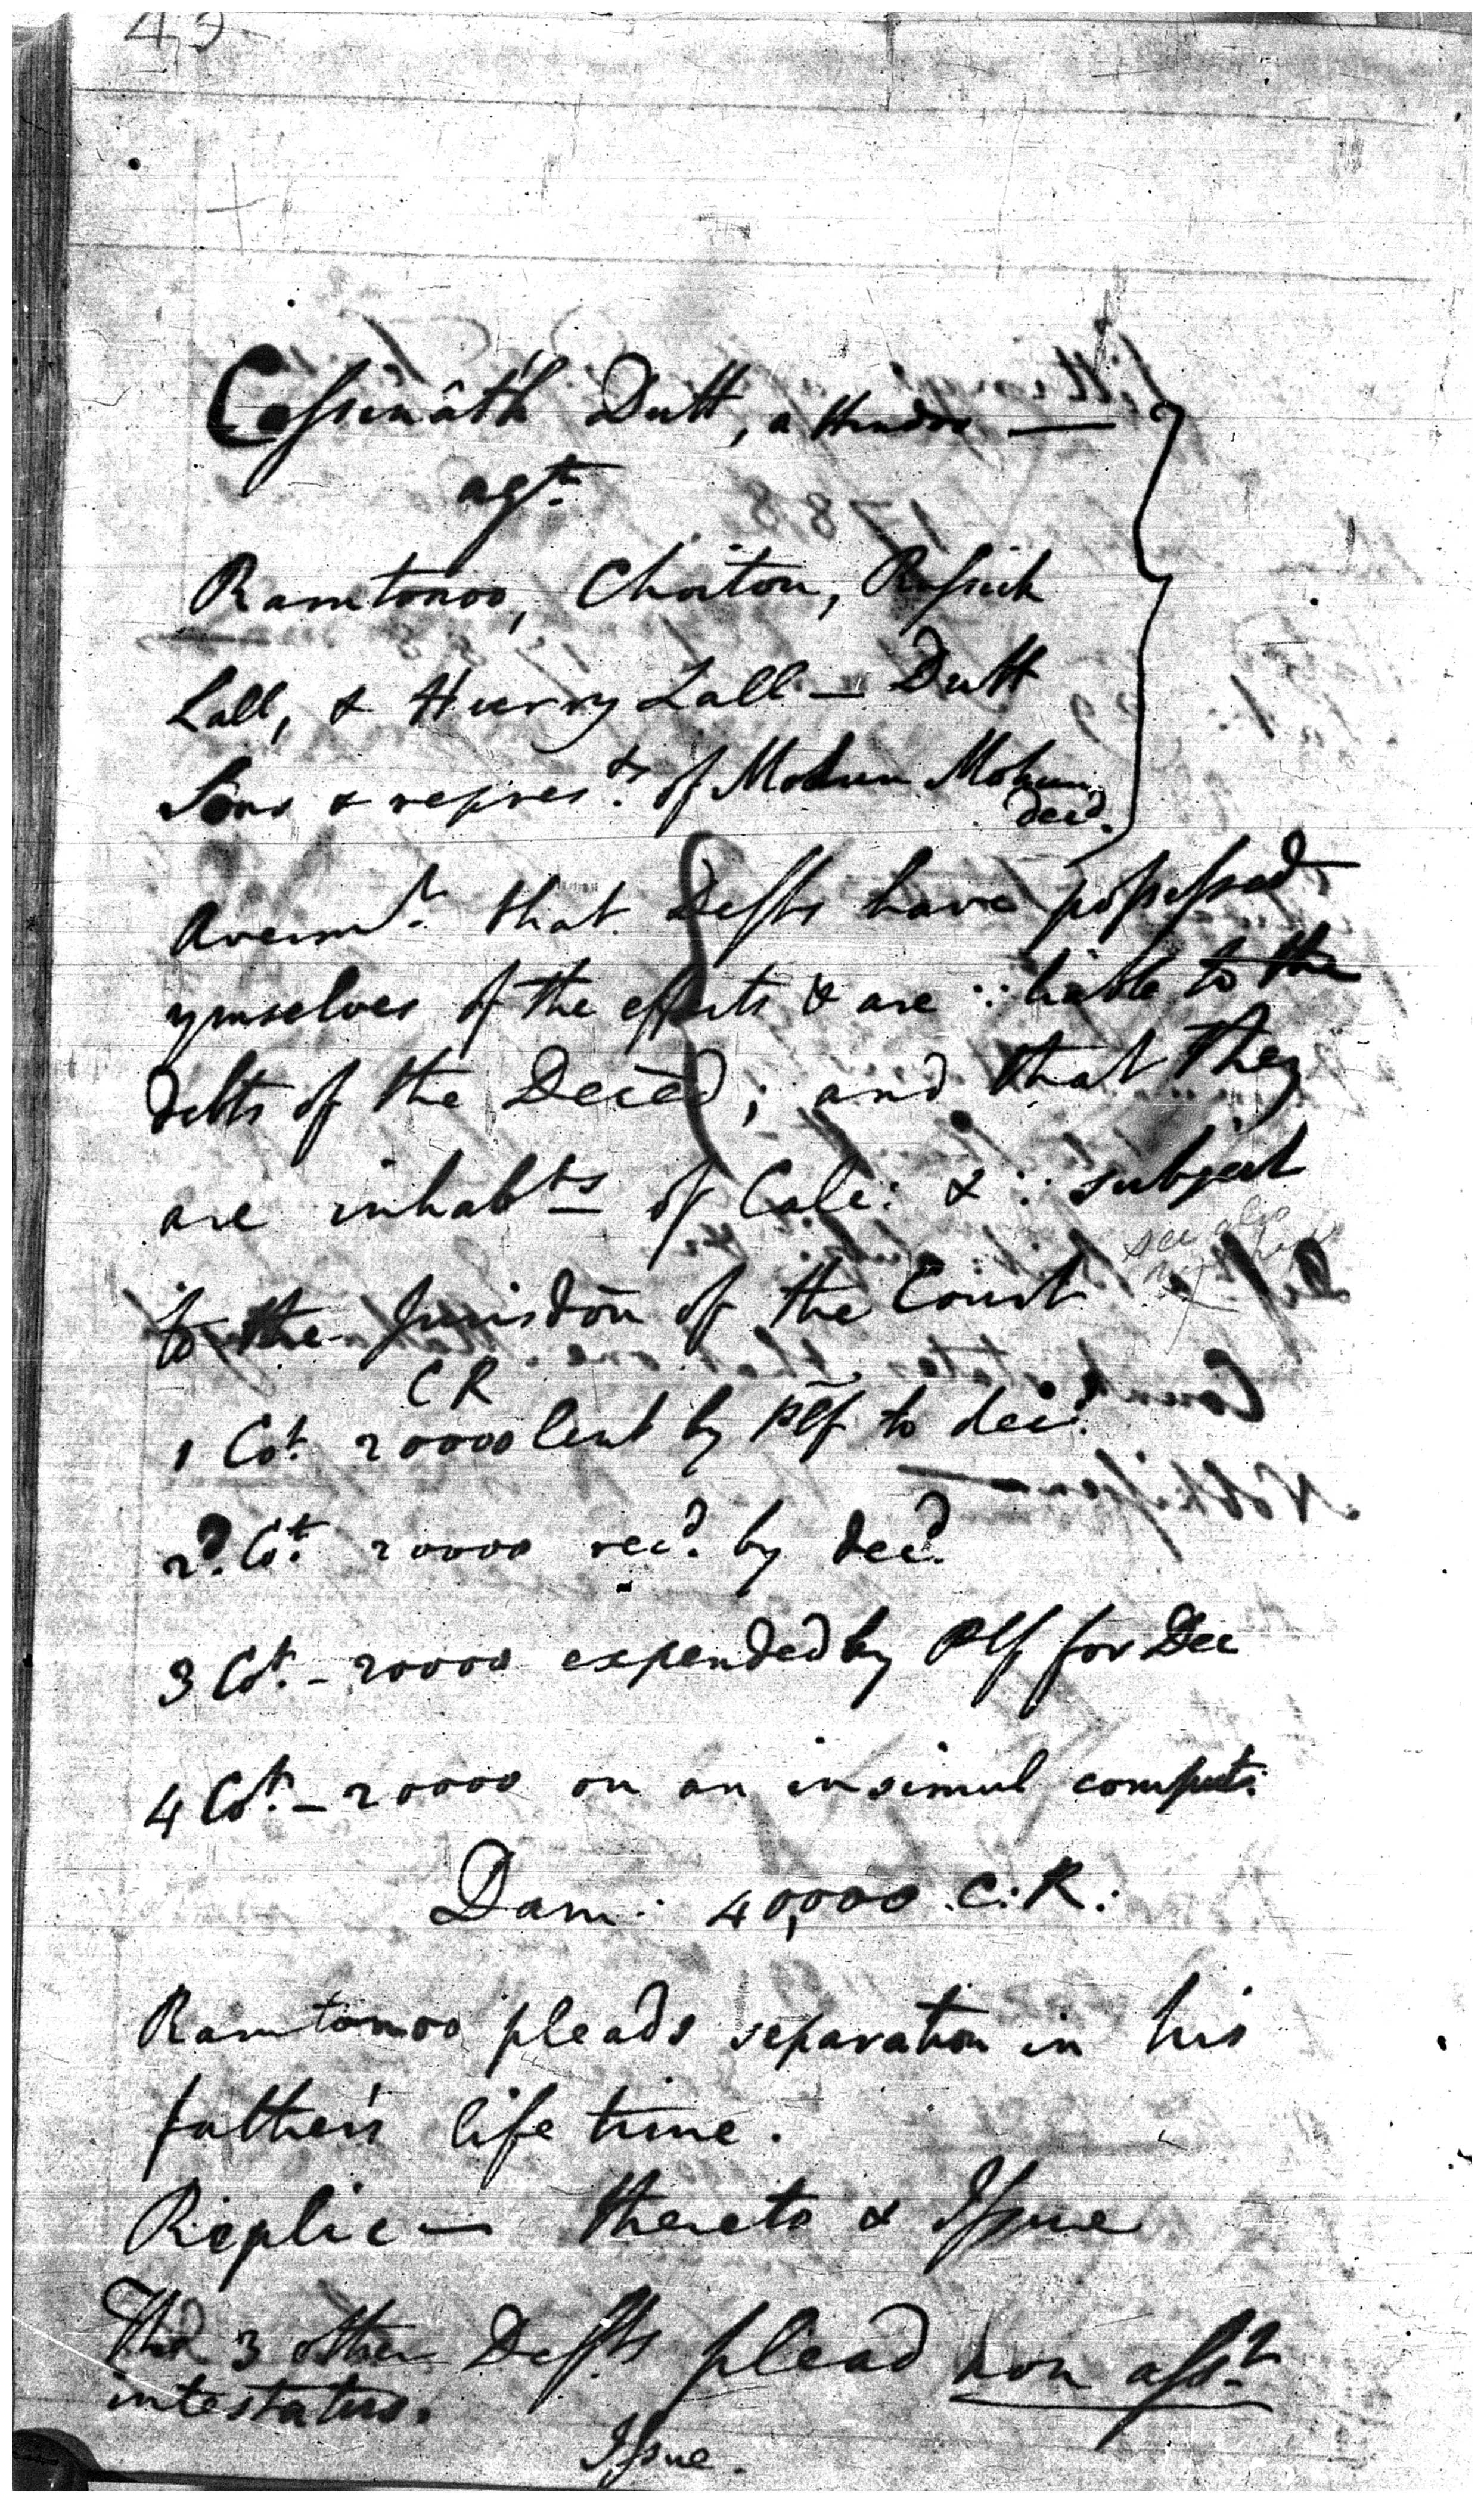 Cossinâth Dutt, a Hindoo —
agt.
Ramtonoo, Choiton, Rossick
Lall, & Hurry Lall — Dutt
Sons & represts. of Mohun
decd.
Avermt. that Defts have possessed
ymselves of the effects & are ∵ liable to the
debts of the Deced; and that they
are inhabts of Calc: & ∵ subject
see also
to the Jurisdon of the Court
C R
1 Cot. 20000 lent by Plf to decd.
2d. Cot. 20000 recd. by decd.
3 Cot. - 20000 expended by Plf for Dec
4 Cot. - 20000 on an insimul comput:
Dam: 40,000 C: R:
Ramtonoo pleads separation in his
father's life time.
Replic— thereto & Issue
The 3 other Defts plead non asst.
intestatus.
Issue.